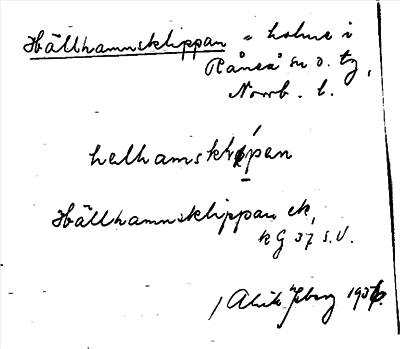 Hällhamnsklippan = holme i
Råneå sn o. tg,
Norrb. l.
helhamsklipan
Hällhamnsklippan ek,
KG 37 S.V.
1936.